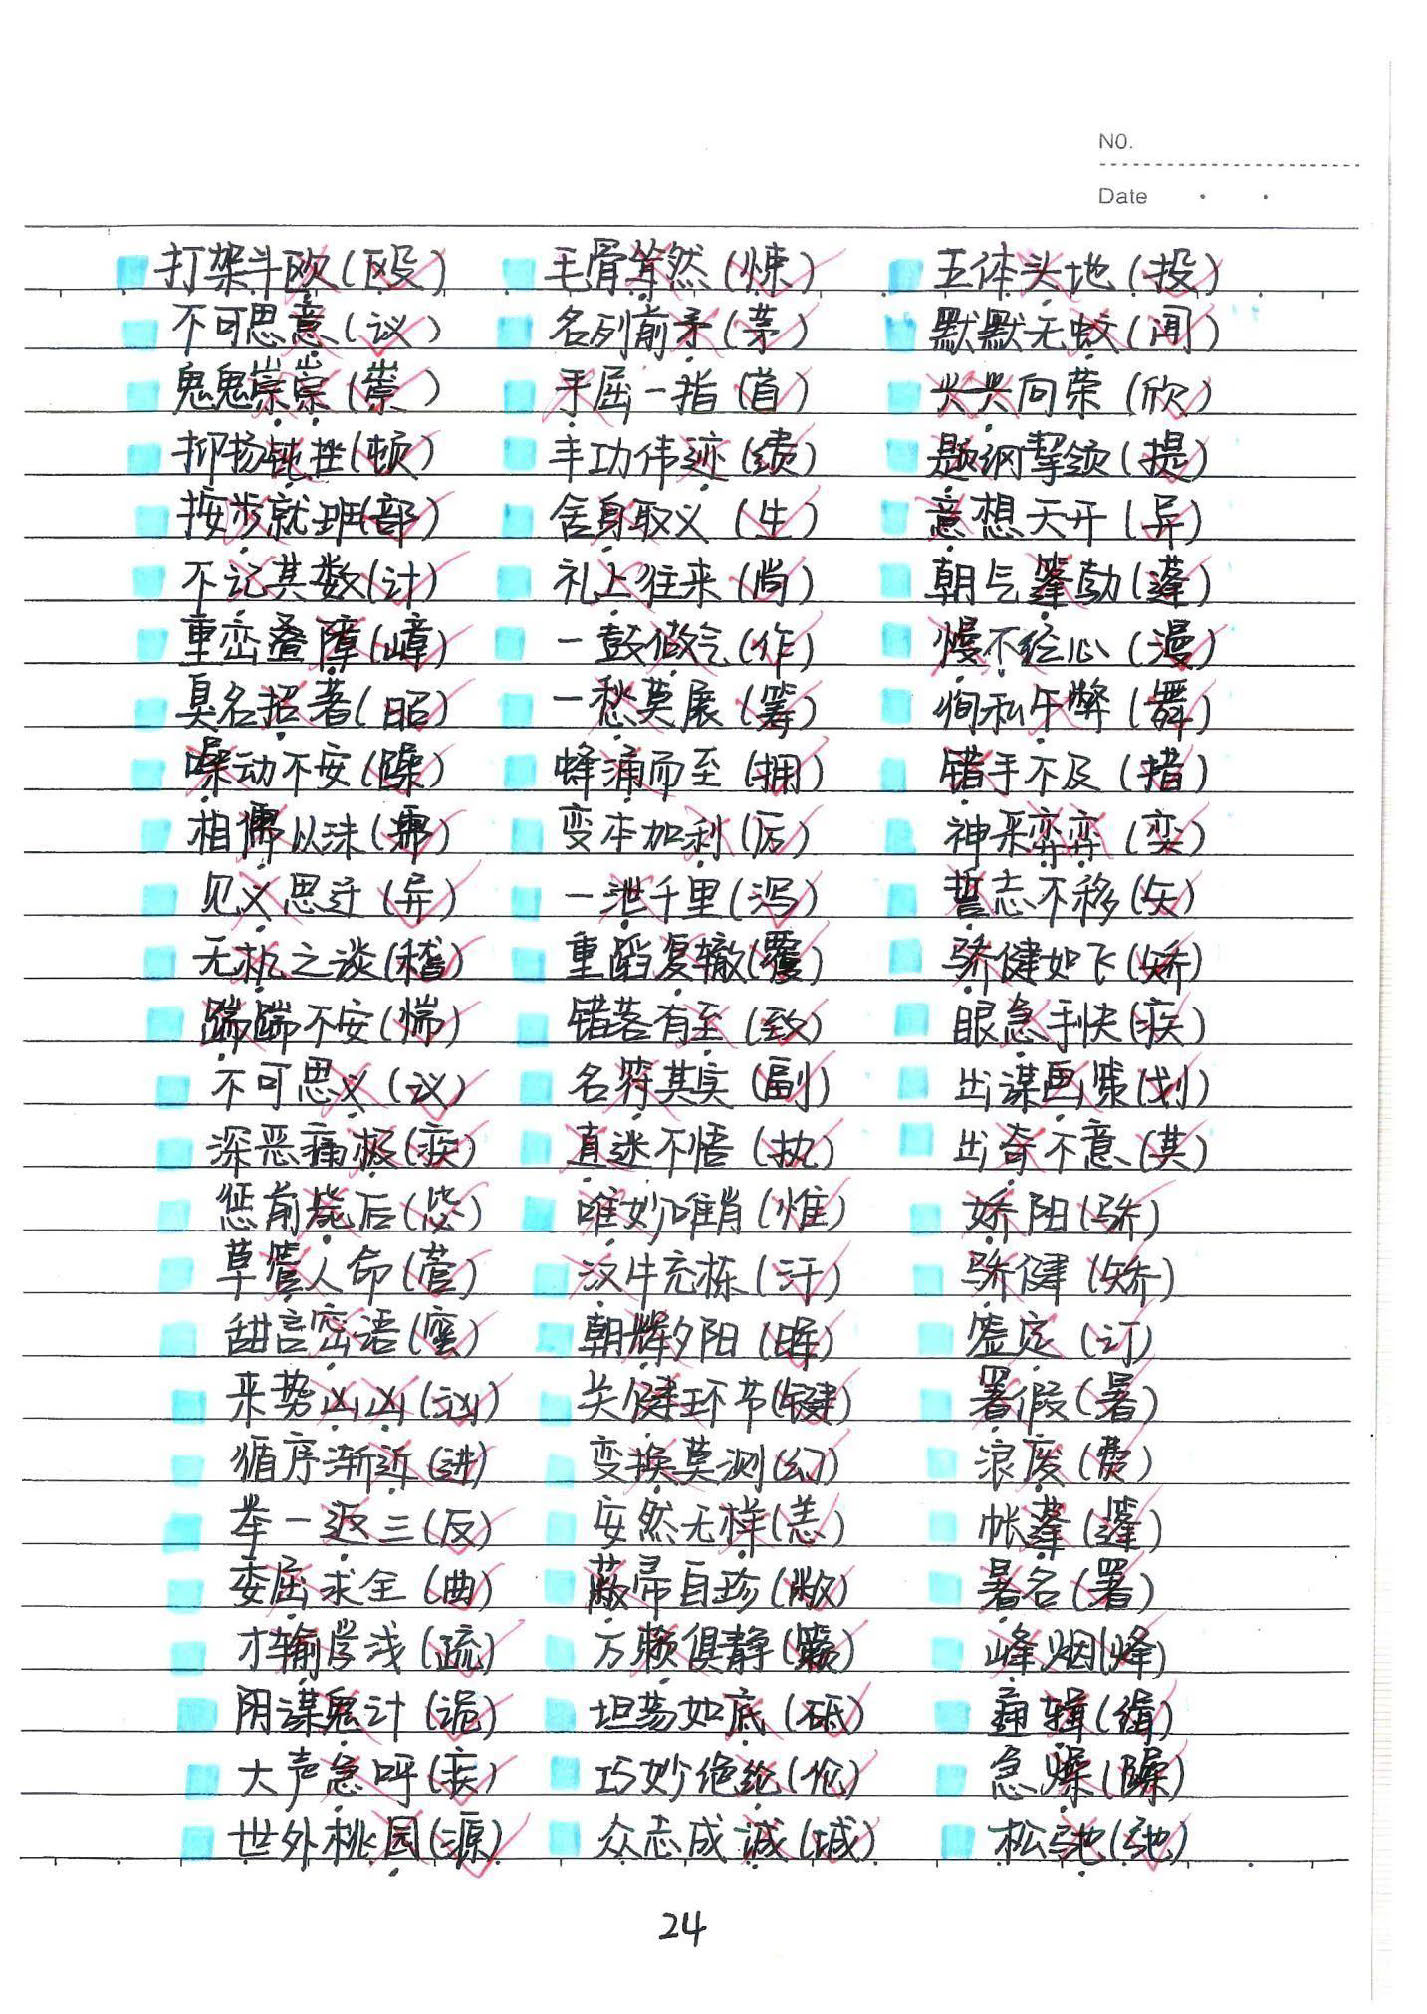 NO.
Date
打架斗欧(殴) 毛骨耸然(悚) 五体头地(投)
不可思意(议) 名列前矛(茅) 默默无蚊(闻)
鬼鬼崇崇(祟) 手屈一指(首) 兴兴向荣(欣)
抑扬钝挫(顿) 丰功伟迹(绩) 题纲挈领(提)
按步就班(部) 舍身取义(生) 意想天开(异)
不记其数(计) 礼上往来(尚) 朝气篷勃(蓬)
重峦叠障(嶂) 一鼓做气(作) 慢不经心(漫)
臭名招著(昭) 一愁莫展(筹) 徇私午弊(舞)
噪动不安(躁) 蜂涌而至(拥) 错手不及(措)
相儒以沫(濡) 变本加利(厉) 神采弈弈(奕)
见义思迁(异) 一泄千里(泻) 誓志不移(矢)
无机之谈(稽) 重蹈复辙(覆) 骄健如飞(矫)
踹踹不安(惴) 错落有至(致) 眼急手快(疾)
不可思义(议) 名符其实(副) 出谋画策(划)
深恶痛极(疾) 直迷不悟(执) 出奇不意(其)
惩前毙后(毖) 唯妙唯肖(惟) 娇阳(骄)
草管人命(菅) 汉牛充栋(汗) 骄健(矫)
甜言密语(蜜) 朝辉夕阳(晖) 签定(订)
来势凶凶(汹) 关健环节(键) 署假(暑)
循序渐近(进) 变换莫测(幻) 浪废(费)
举一返三(反) 安然无样(恙) 帐蓬(篷)
委屈求全(曲) 蔽帚自珍(敝) 暑名(署)
才输学浅(疏) 万赖俱静(籁) 峰烟(烽)
阴谋鬼计(诡) 坦荡如底(砥) 辑(缉)
大声急呼(疾) 巧妙绝纶(伦) 急燥(躁)
世外桃园(源) 众志成诚(城) 松驰(弛)
24